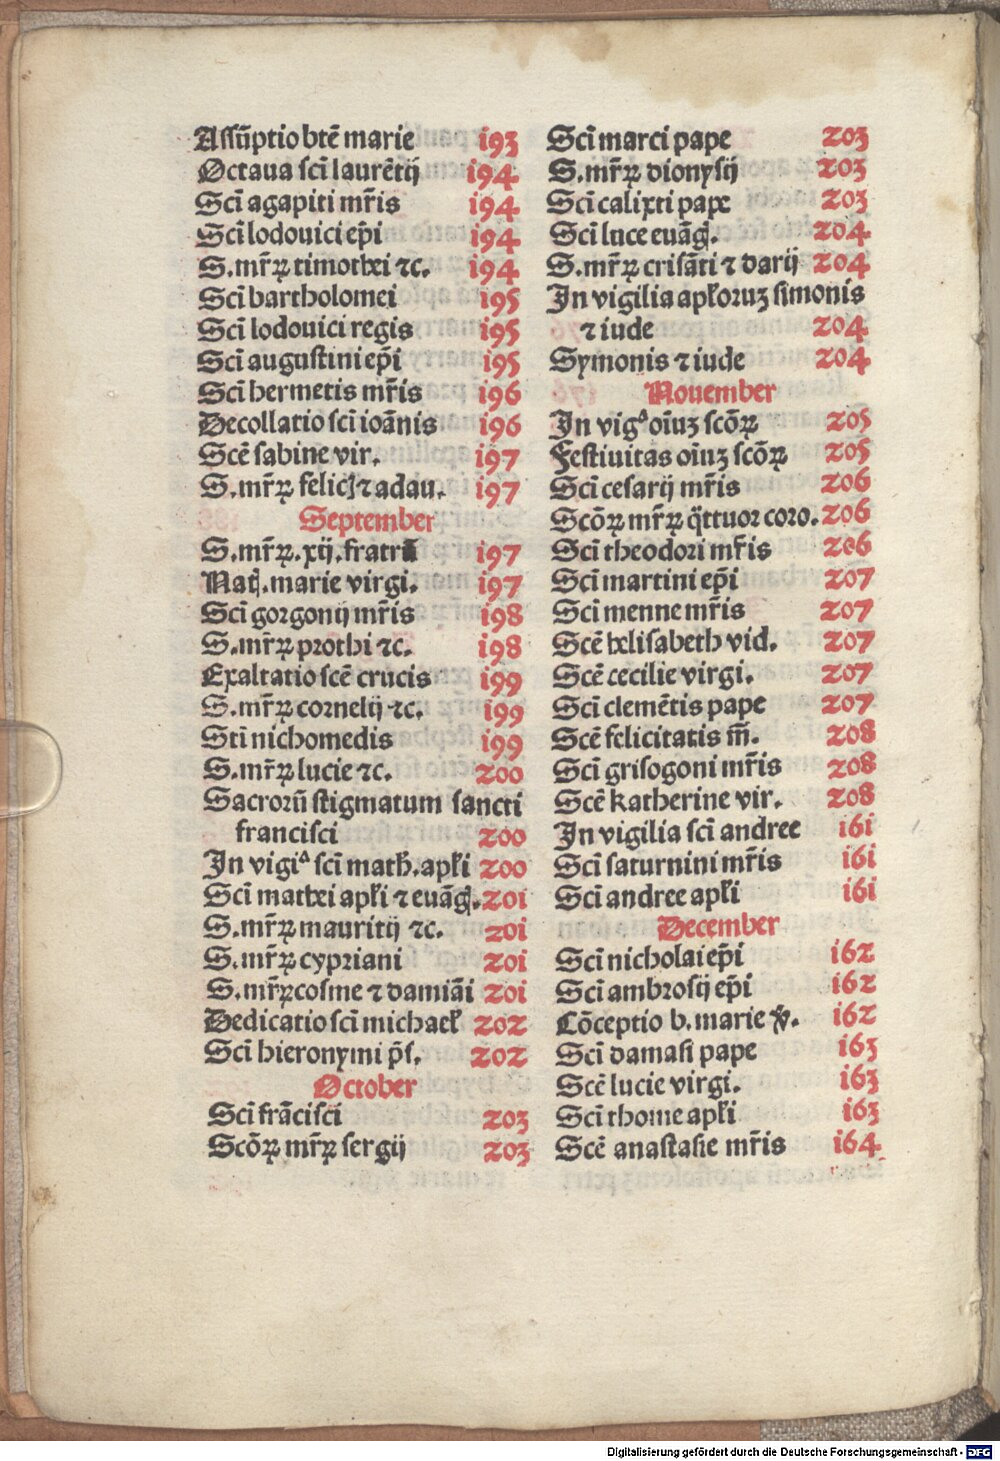 Assūptio btē marie 193
Octaua sci̅ laurētij 194
Sci̅ agapiti mr̄is 194
Sci̅ lodouici ep̄i 194
S. mr̄ꝝ timothei ⁊c. 194
Sci̅ bartholomei 195
Sci̅ lodouici regis 195
Sci̅ augustini ep̄i 195
Sci̅ hermetis mr̄is 196
Decollatio sci̅ ioānis 196
Scē sabine vir. 197
S. mr̄ꝝ felicꝭ ⁊ adau. 197
September
S. mr̄ꝝ .xij. fratrū 197
Natꝭ. marie virgi. 197
Sci̅ gorgonij mr̄is 198
S. mr̄ꝝ prothi ⁊c. 198
Exaltatio scē crucis 199
S. mr̄ꝝ cornelij ⁊c. 199
Sti̅ nichomedis 199
S. mr̄ꝝ lucie ⁊c. 200
Sacrorū stigmatum sancti
francisci 200
In vigiᵃ sci̅ math̄. apłi 200
Sci̅ mathei apłi ⁊ euāgꝭ. 201
S. mr̄ꝝ mauritij ⁊c. 201
S. mr̄ꝝ cypriani 201
S. mr̄ꝝ cosme ⁊ damiāi 201
Dedicatio sci̅ michaeł 202
Sci̅ hieronymi p̄s. 202
October
Sci̅ frācisci 203
Scōꝝ mr̄ꝝ sergij 203
Sci̅ marci pape 203
S. mr̄ꝝ dionysij 203
Sci̅ calixti pape 203
Sci̅ luce euāgꝭ. 204
S. mr̄ꝝ crisāti ⁊ darij 204
In vigilia apłoruꝫ simonis
⁊ iude 204
Symonis ⁊ iude 204
Nouember
In vigᵃ oīuꝫ scōꝝ 205
Festiuitas oīuꝫ scōꝝ 205
Sci̅ cesarij mr̄is 206
Scōꝝ mr̄ꝝ q̄ttuor coro. 206
Sci̅ theodori mr̄is 206
Sci̅ martini ep̄i 207
Sci̅ menne mr̄is 207
Scē helisabeth vid. 207
Scē cecilie virgi. 207
Sci̅ clemētis pape 207
Scē felicitatis m̄. 208
Sci̅ grisogoni mr̄is 208
Scē katherine vir. 208
In vigilia sci̅ andree 161
Sci̅ saturnini mr̄is 161
Sci̅ andree apłi 161
December
Sci̅ nicholai ep̄i 162
Sci̅ ambrosij ep̄i 162
Cōceptio b. marie v̄. 162
Sci̅ damasi pape 163
Scē lucie virgi. 163
Sci̅ thome apłi 163
Scē anastasie mr̄is 164
Digitalisierung gefördert durch die Deutsche Forschungsgemeinschaft - DFG